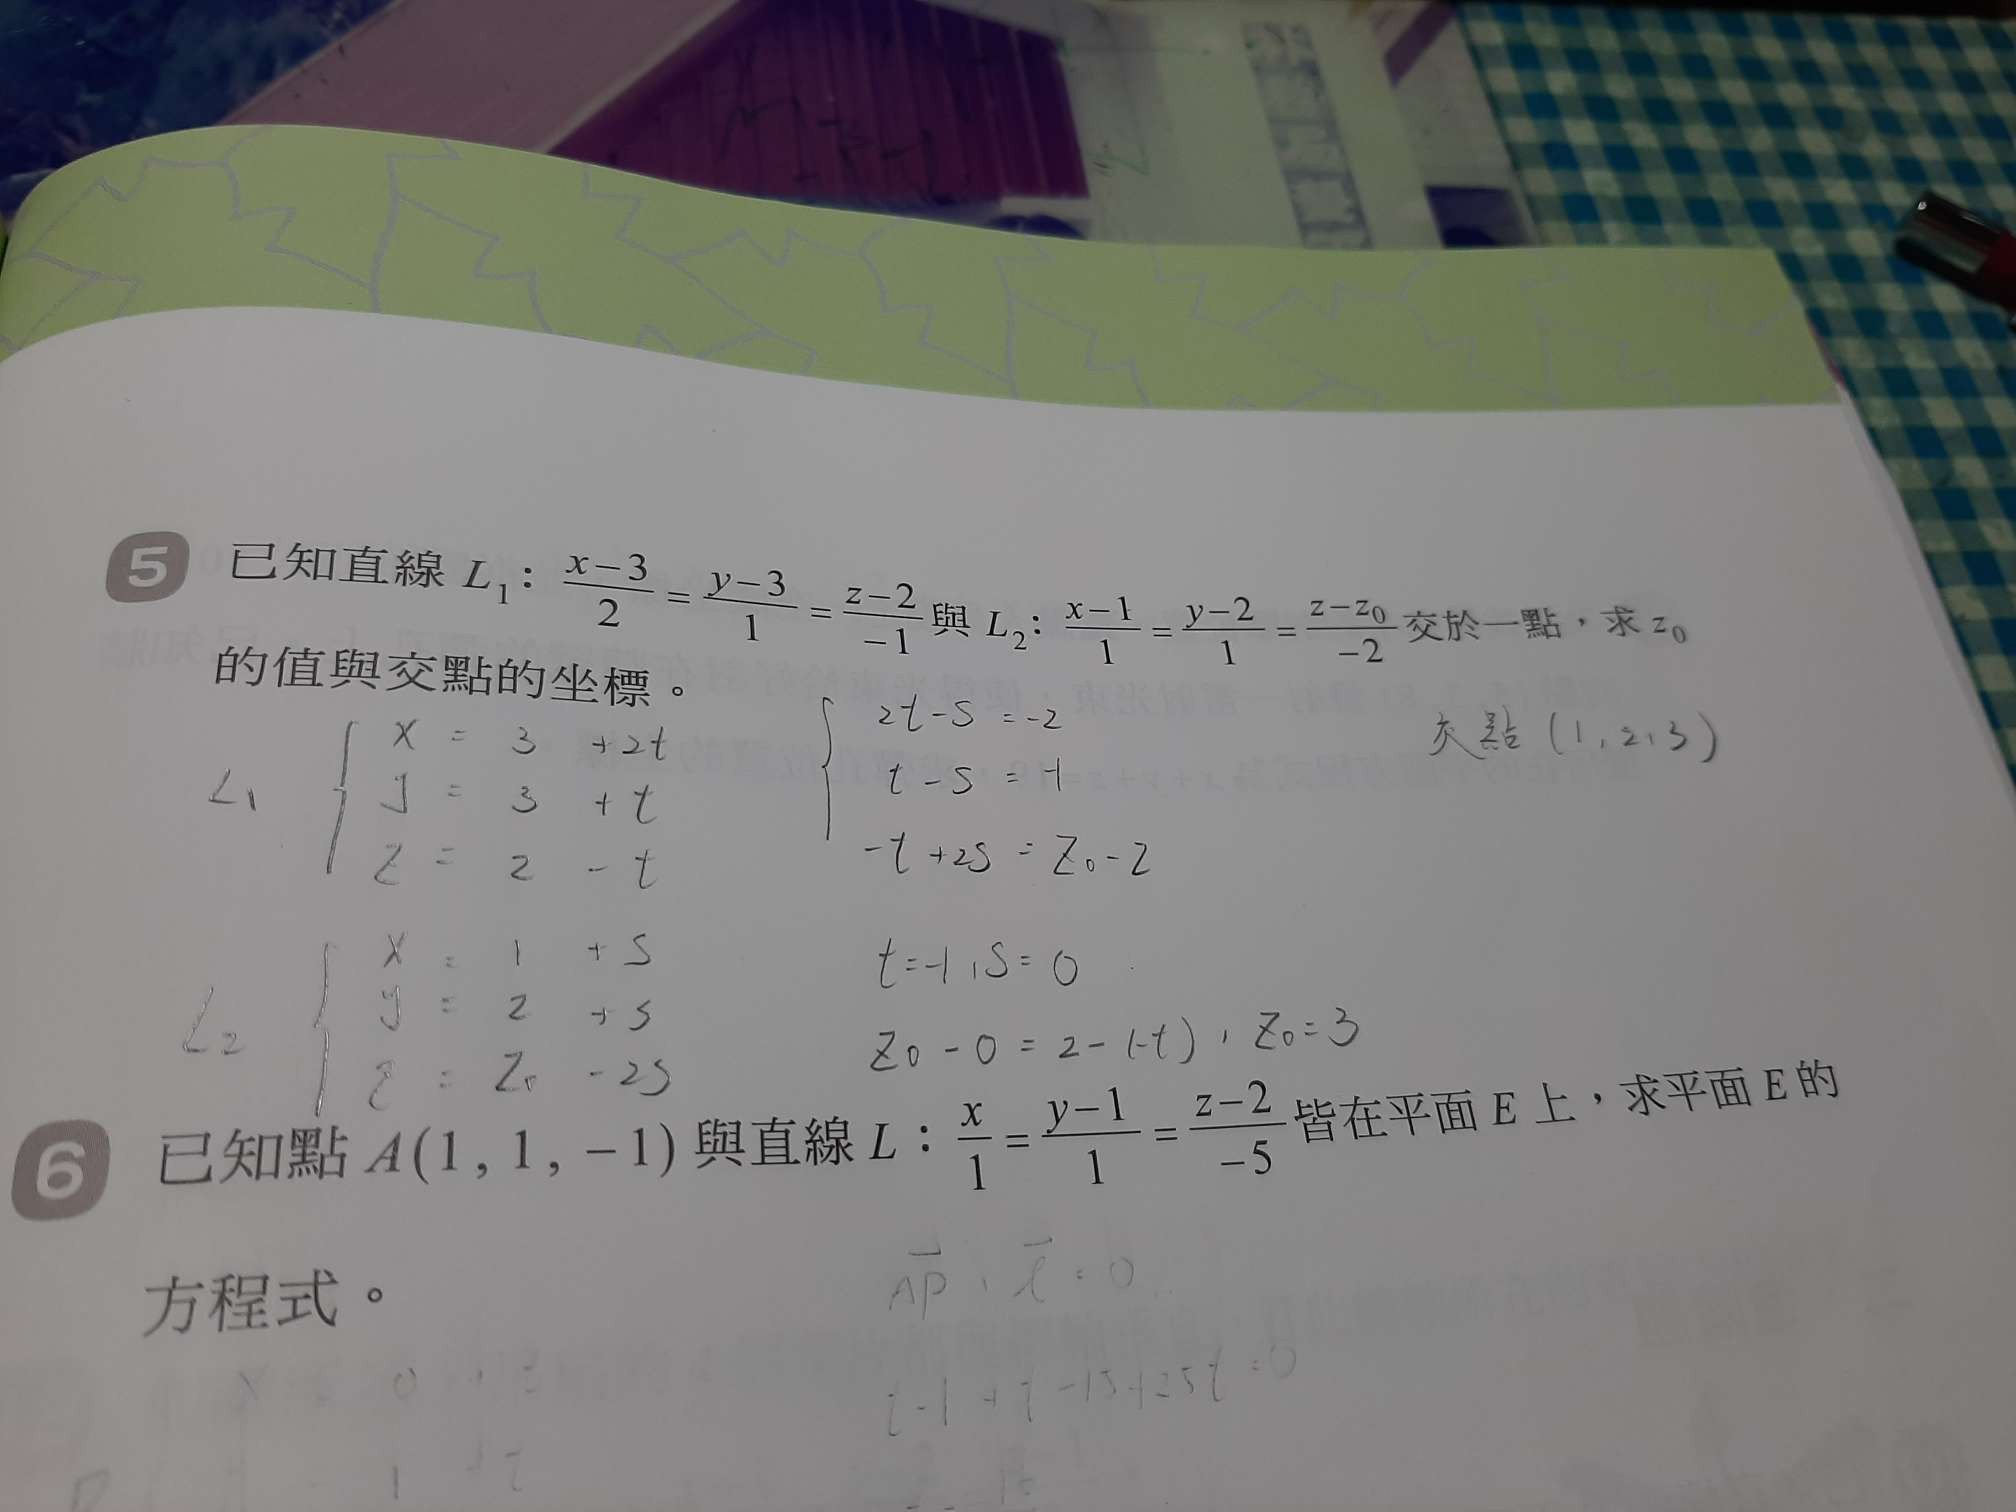 5 已知直線 L₁：(x−3)/2 = (y−3)/1 = (z−2)/−1 與 L₂：(x−1)/1 = (y−2)/1 = (z−z₀)/−2 交於一點，求 z₀
的值與交點的坐標。
L₁ { x = 3 +2t
y = 3 + t
z = 2 - t
L₂ { x = 1 + s
y = 2 + s
z = z₀ - 2s
{ 2t-s = -2
t-s = -1
-t+2s = z₀-2
t=-1, s=0
z₀ - 0 = 2-(-t), z₀=3
交點 (1, 2, 3)
6 已知點 A(1, 1, −1) 與直線 L：x/1 = (y−1)/1 = (z−2)/−5 皆在平面 E 上，求平面 E 的
方程式。
AP⃗ · l⃗ = 0
t-1+t-15+25t=0